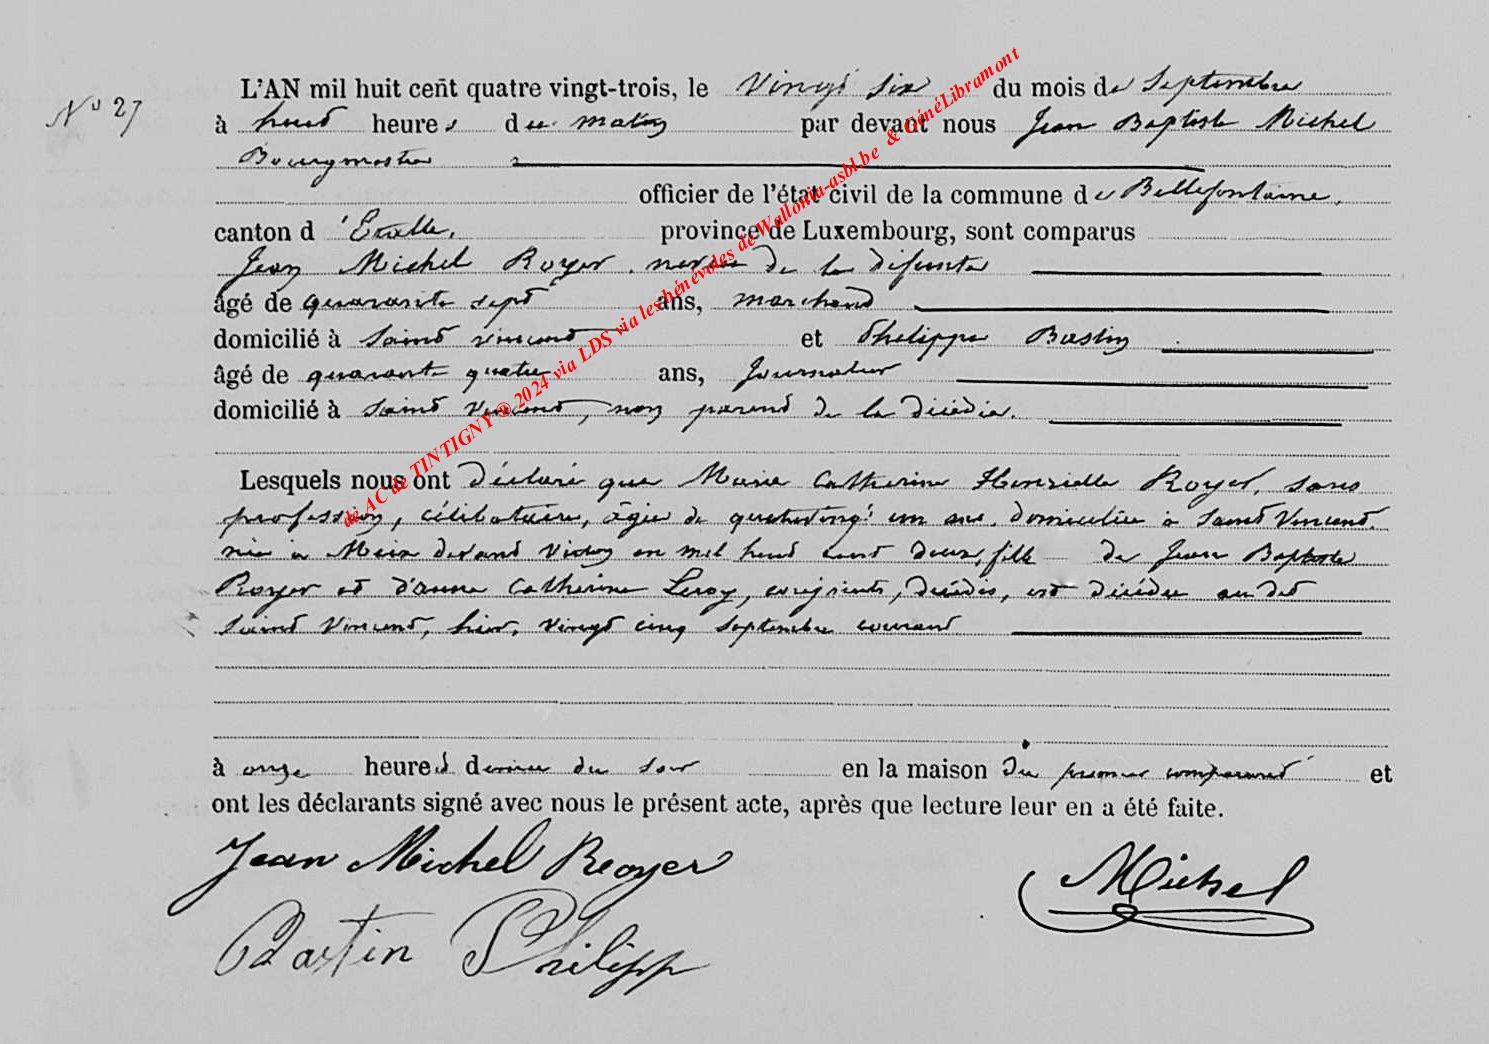 N° 27
L'AN mil huit cent quatre vingt-trois, le Vingt Six du mois de Septembre
à huit heures du matin par devant nous Jean Baptiste Michel
Bourgmestre
officier de l'état civil de la commune de Bellefontaine,
canton d'Etalle, province de Luxembourg, sont comparus
Jean Michel Royer, neveu de la défunte
âgé de quarante sept ans, marchand
domicilié à Saint Vincent et Philippe Bastin
âgé de quarante quatre ans, Journalier
domicilié à Saint Vincent, non parent de la décédée.
Lesquels nous ont déclaré que Marie Catherine Henriette Royer, sans
profession, célibataire, âgée de quatrevingt un ans, domiciliée à Saint Vincent,
née à Meix devant Virton en mil huit cent deux, fille de Jean Baptiste
Royer et d'anne Catherine Leroy, conjoints, décédés, est décédée au dit
Saint Vincent, hier, vingt cinq septembre courant
à onze heures du soir en la maison du premier comparant et
ont les déclarants signé avec nous le présent acte, après que lecture leur en a été faite.
Jean Michel Royer
Michel
Bastin Philipp
de AC de TINTIGNY ® 2024 via LDS via les bénévoles de Wallonia-asbl.be & GénéLibramont